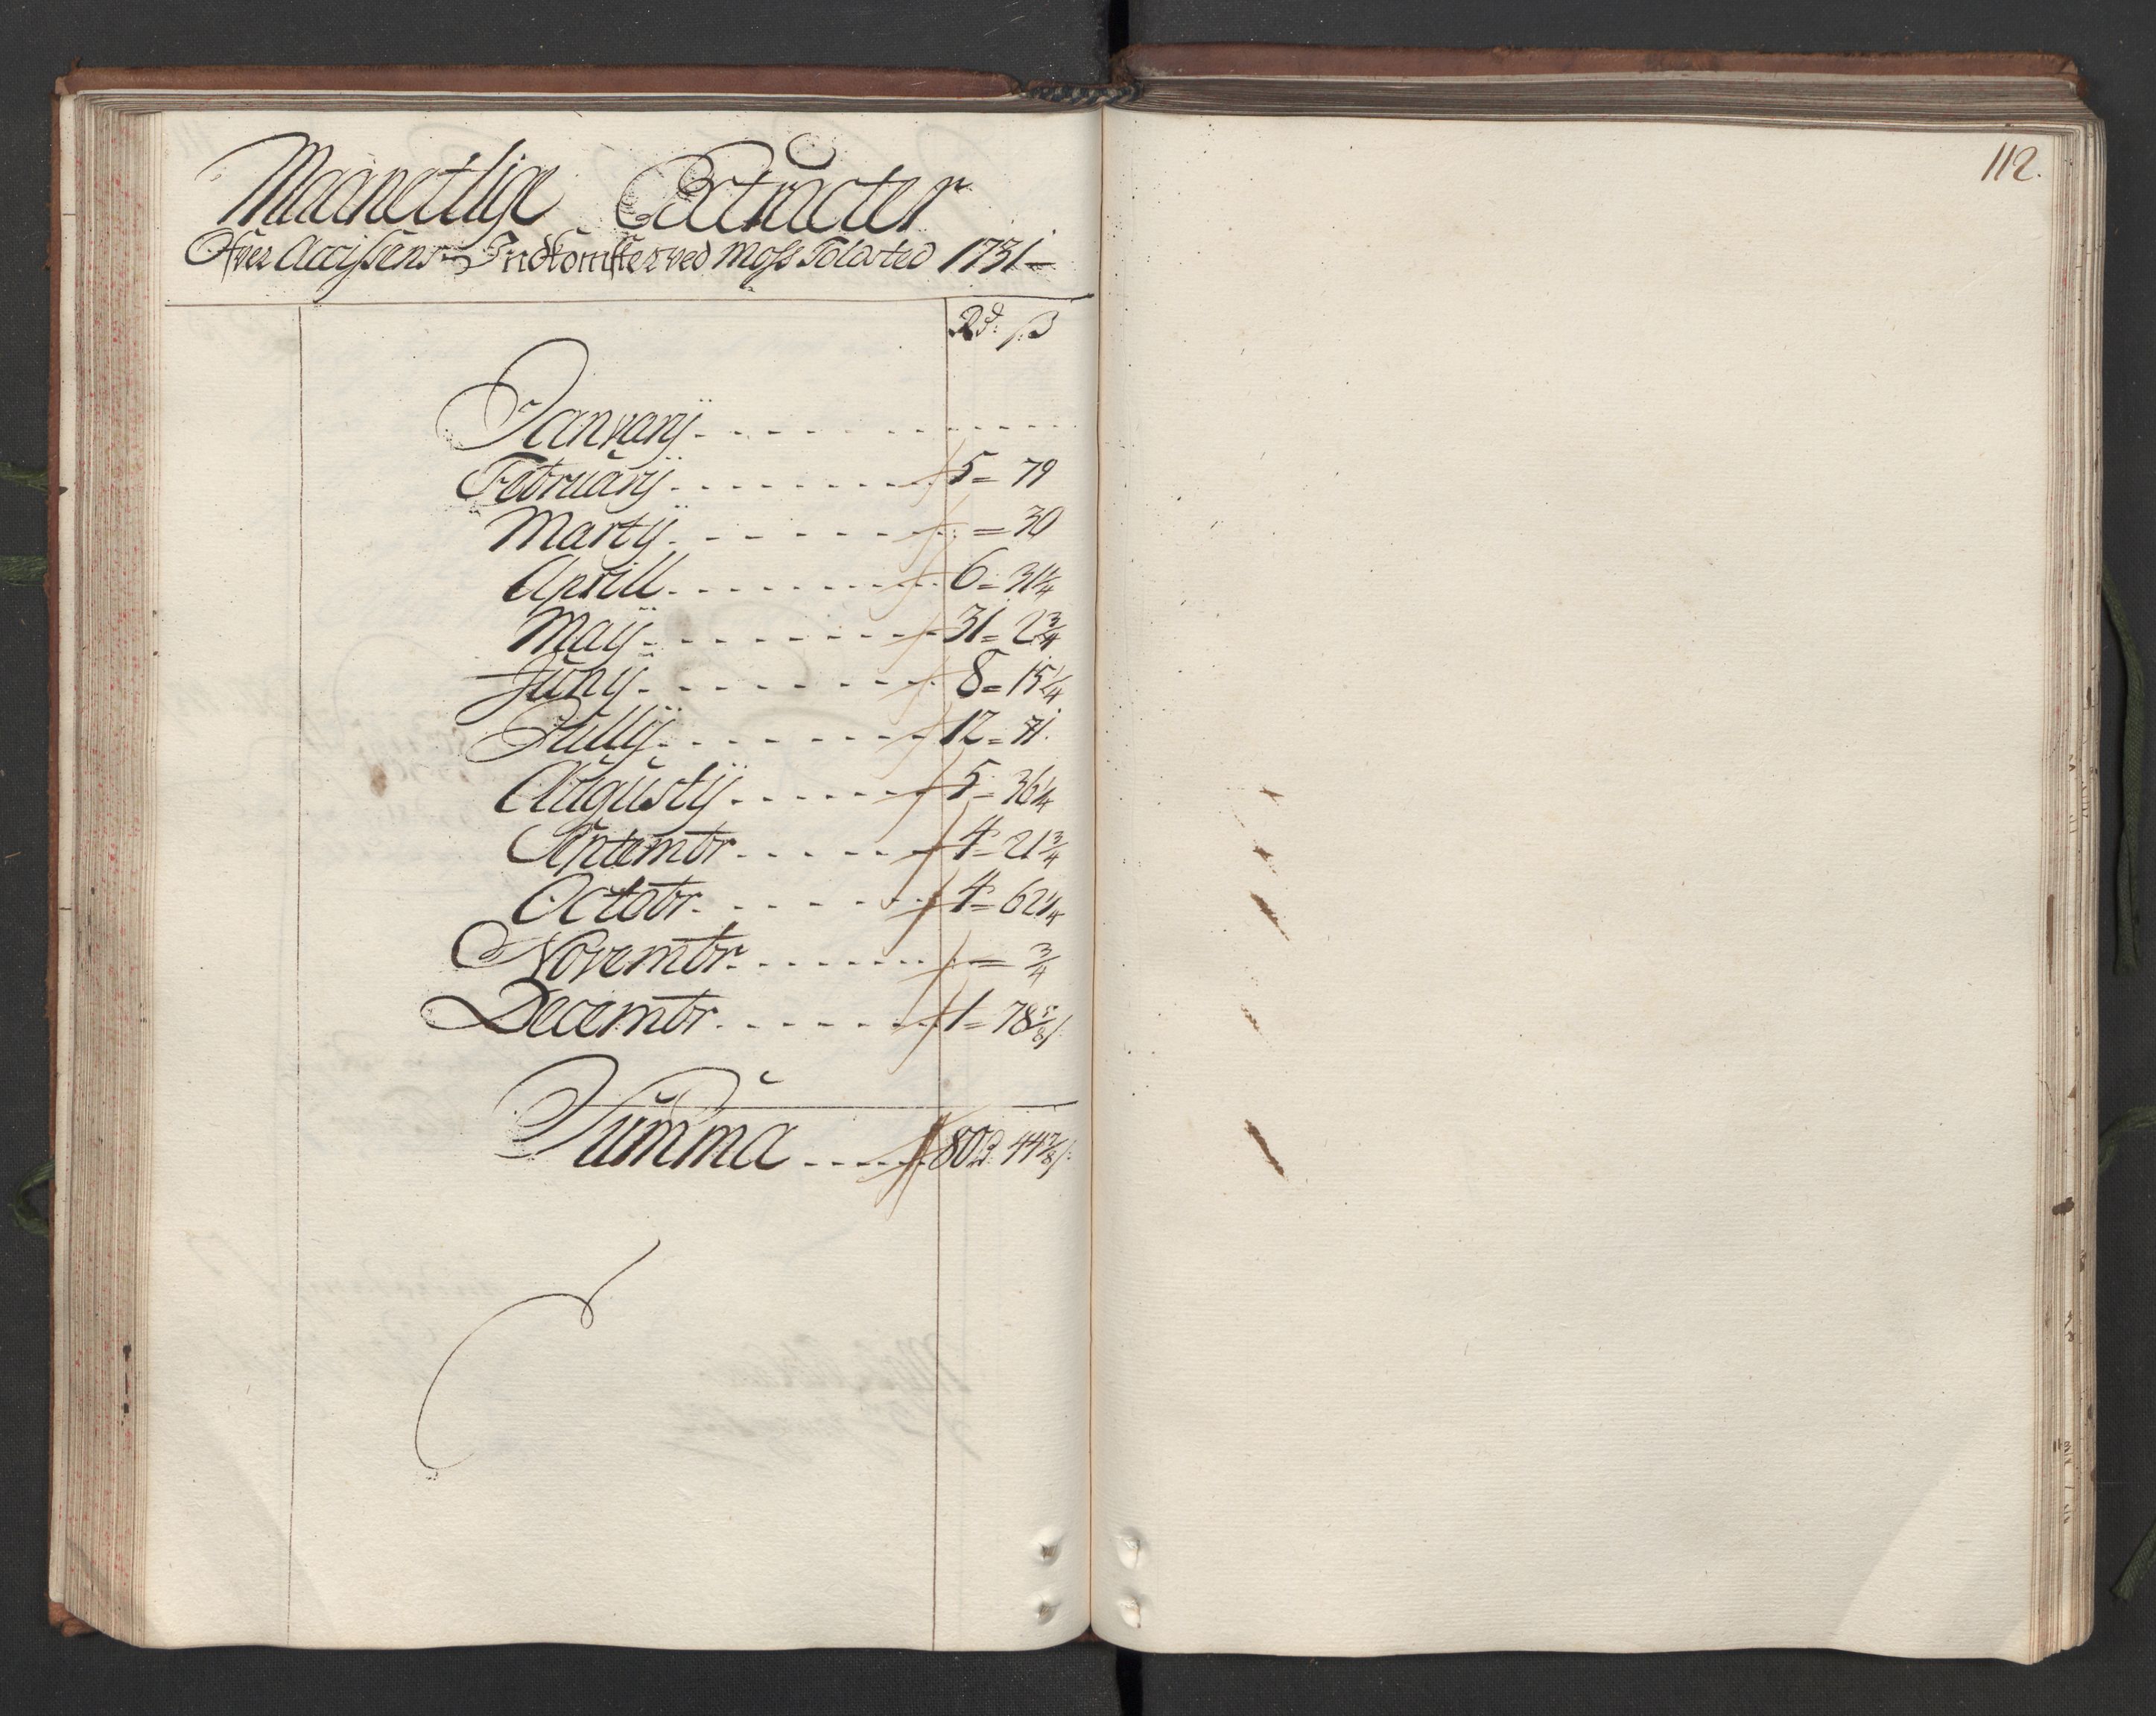 Maanetlige Extracter
Ofver Accissens Indkomster ved Moss Toldsted 1731
Rd: ß
January . . . . . . . .
February . . . . . . . . 5 = 79
Martij . . . . . . : = 30
Aprill . . . . . . . . 6 = 31 1/4
Maij . . . . . . . . 31 = 2 3/4
Junij . . . . . . . 8 = 15 1/4
Jullij . . . . . . . 12 = 71
Augustij . . . . . . 5 = 36 1/4
Septembr . . . . . 4 = 21 3/4
Octobr . . . . . . 4 = 62 1/4
Novembr . . . . . . . = 3/4
Decembr . . . . . . 1 = 78 5/8
Summa . . . . . 80 d 44 7/8
112.